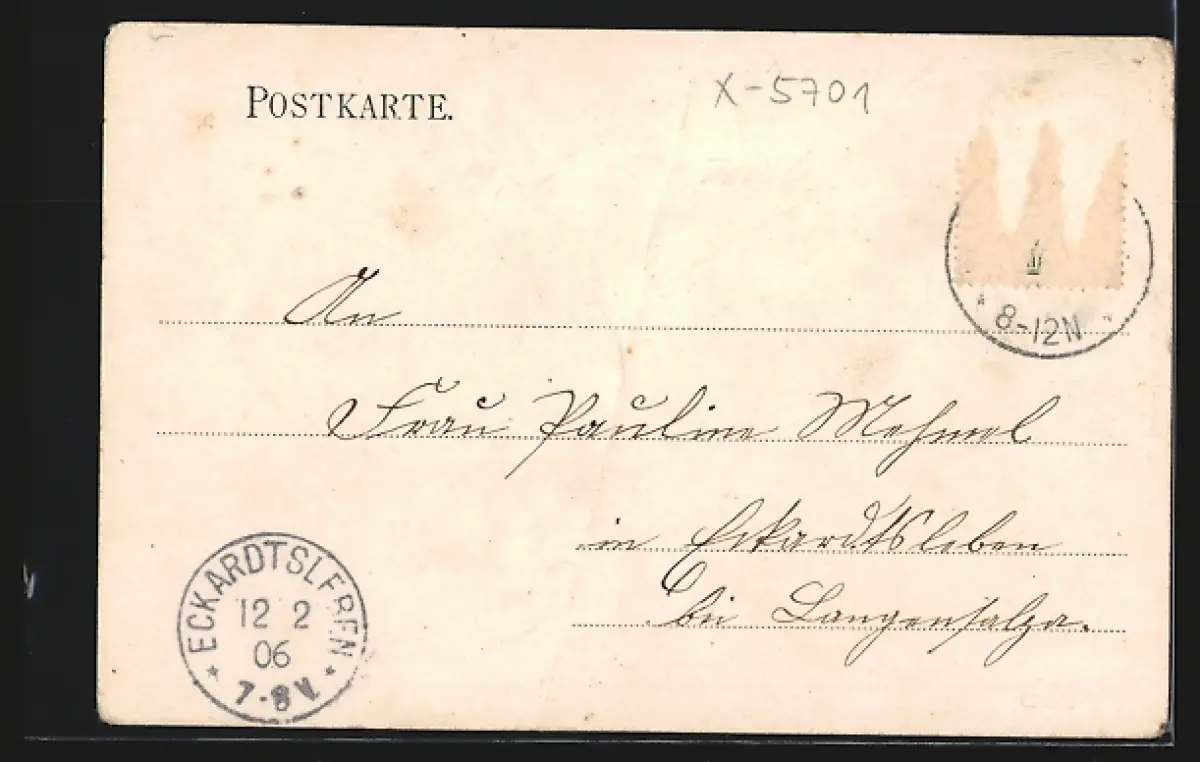 POSTKARTE.
X-5701
8-12N
An
Frau Pauline Mehmel
in Eckardtsleben
bei Langensalza.
ECKARDTSLEBEN
12 2
06
7-8 V.